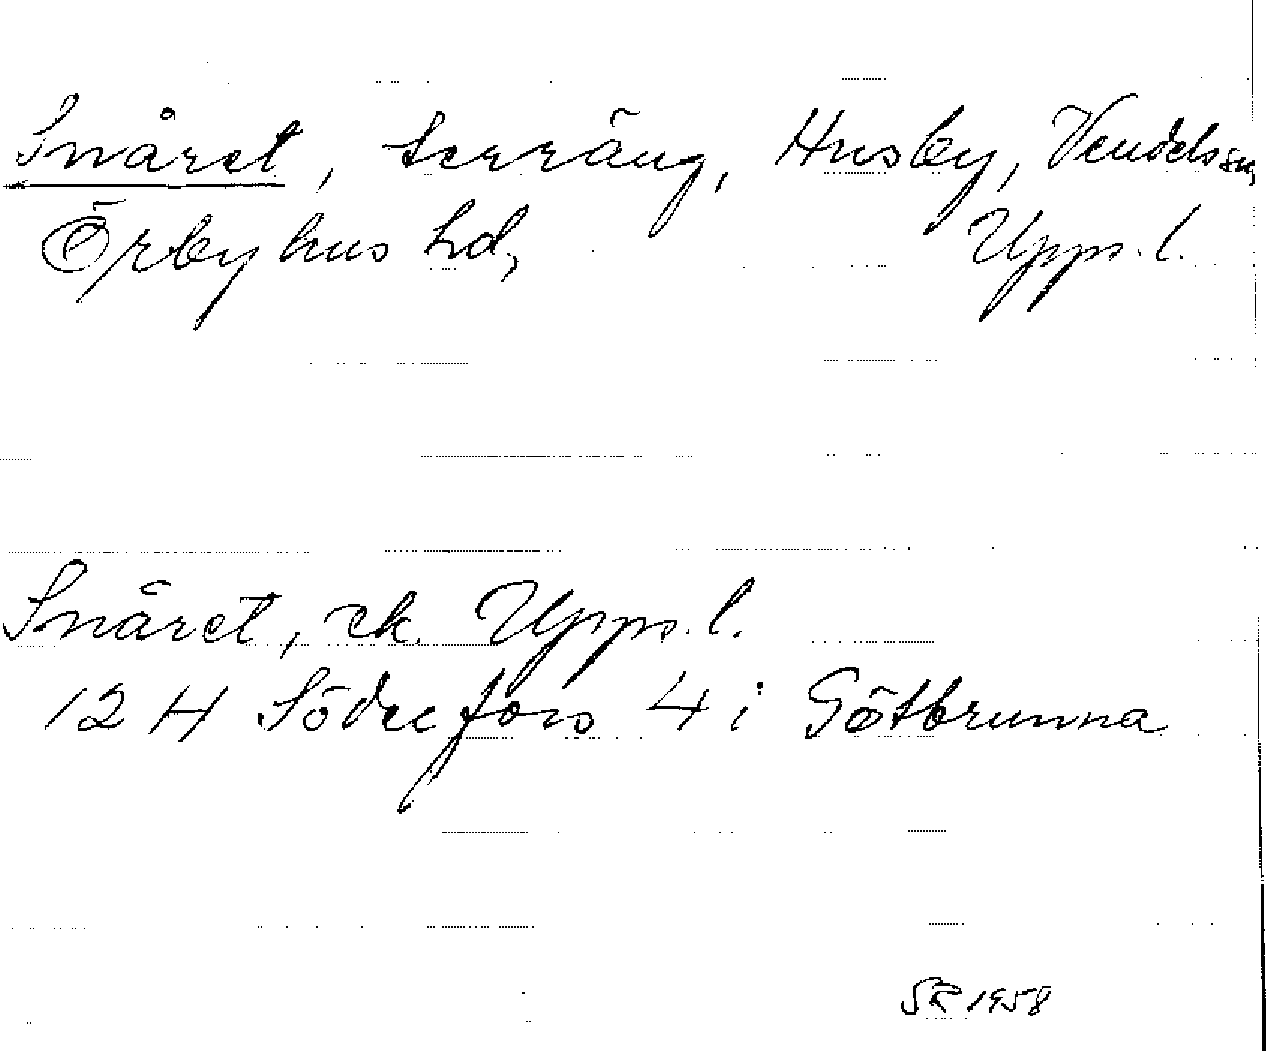 Snåret, terräng, Husby, Vendels sn,
Örbyhus hd, Upps. l.
Snåret, ek. Upps. l.
12 H Söderfors 4 i Götbrunna
SR 1958